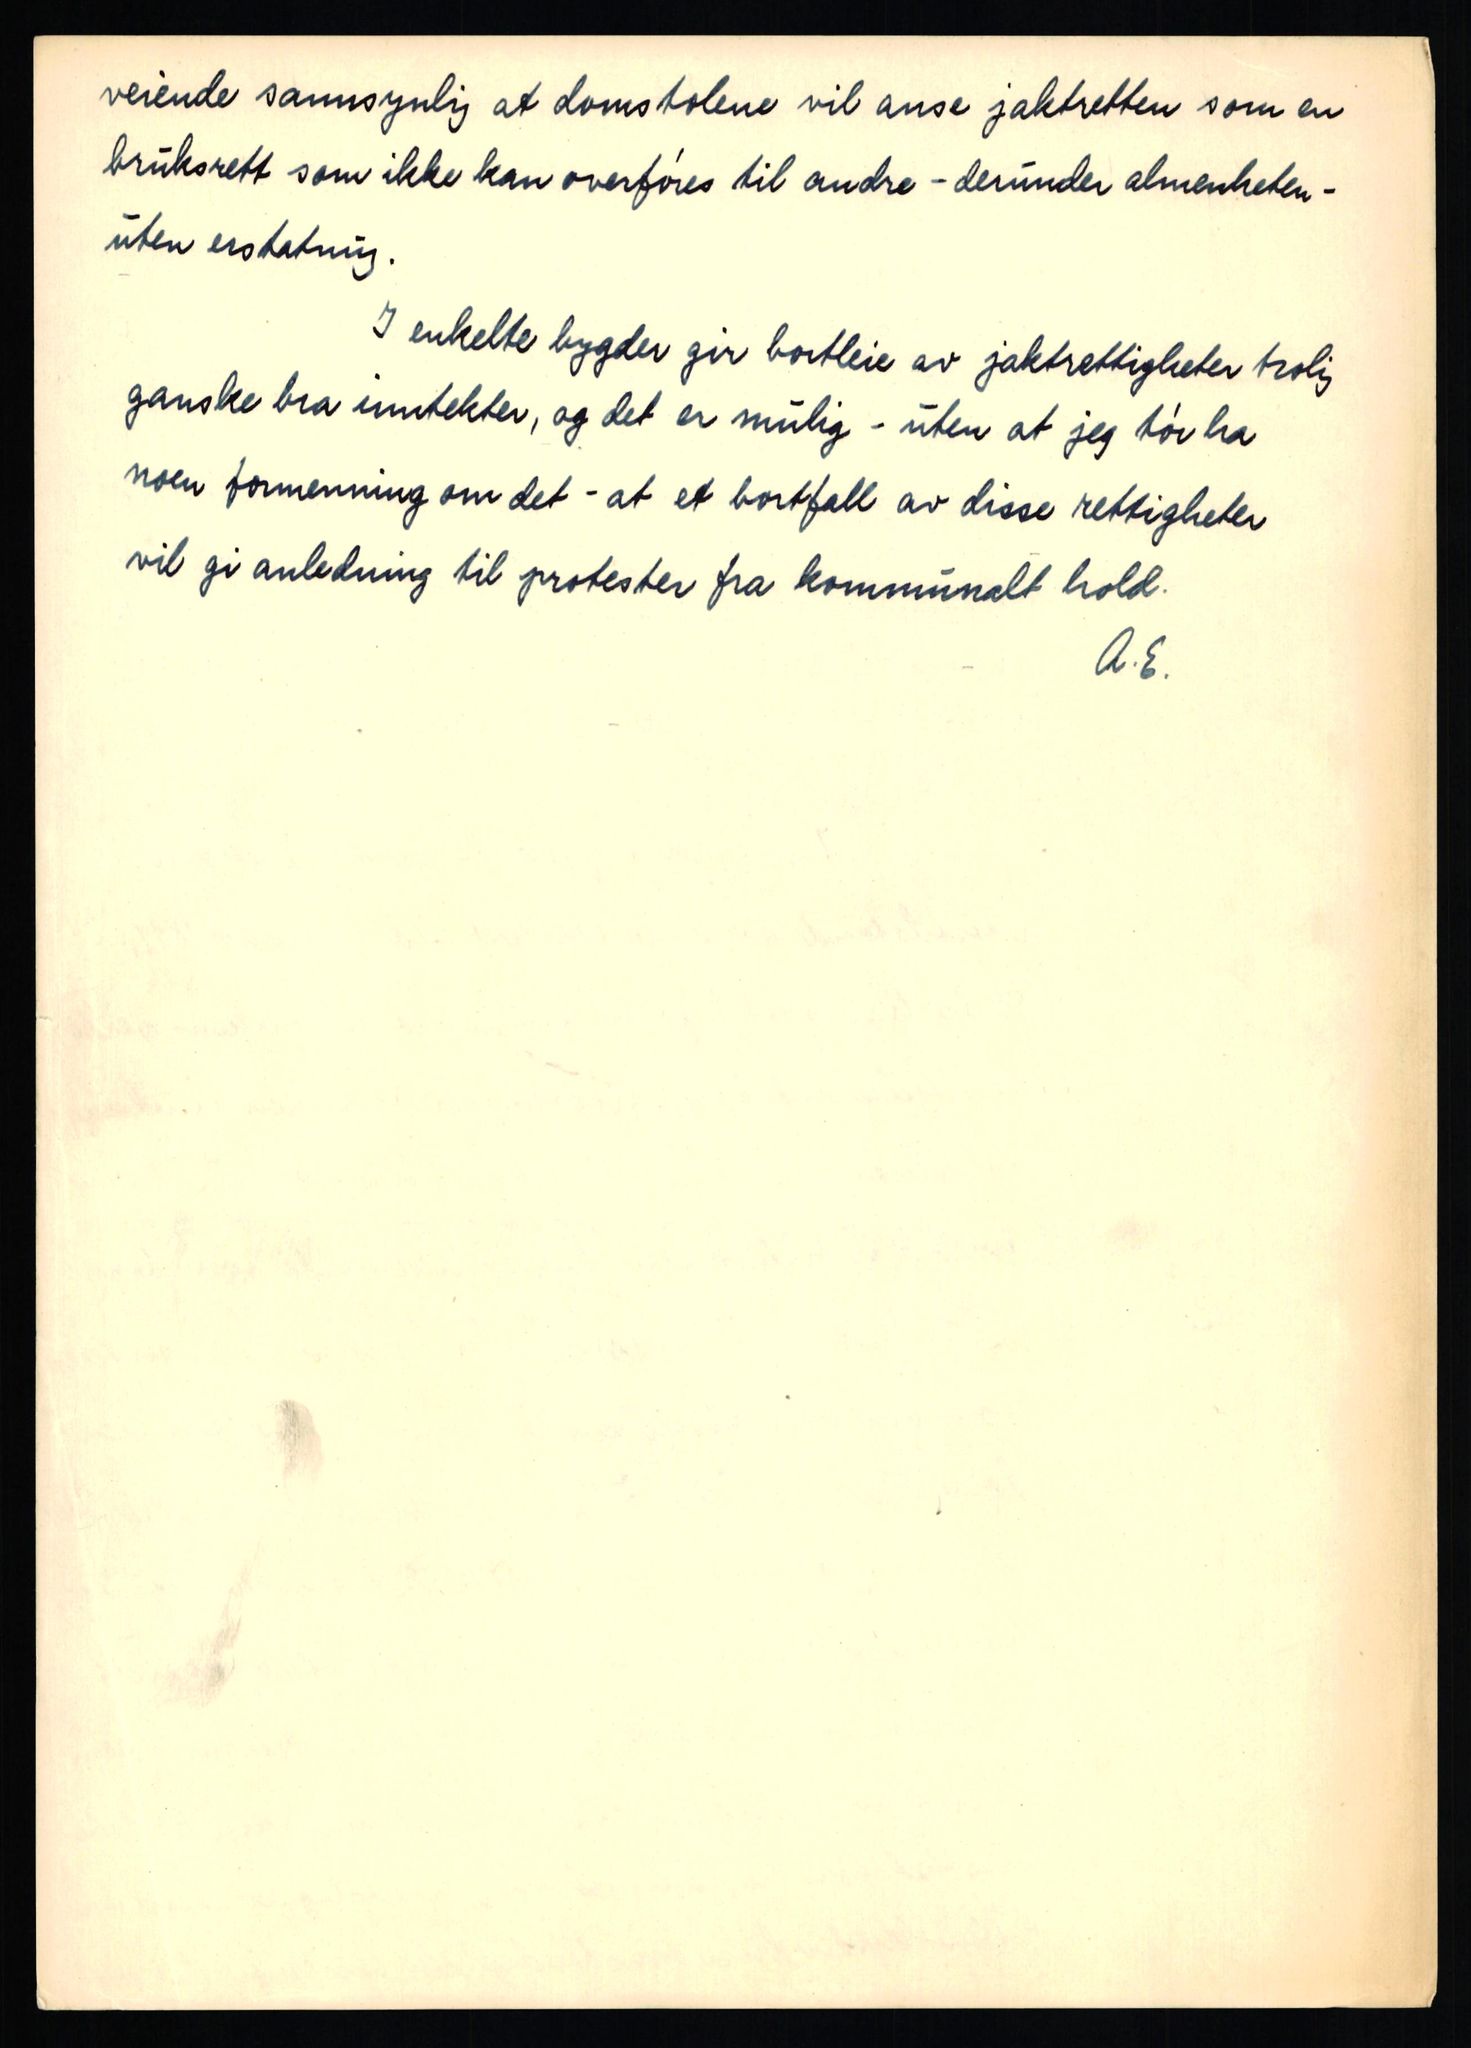 veiende sannsynlig at domstolene vil anse jaktretten som en
bruksrett som ikke kan overføres til andre - derunder almenheten -
uten erstatning.
I enkelte bygder gir bortleie av jaktrettigheter trolig
ganske bra inntekter, og det er mulig - uten at jeg tør ha
noen formenning om det - at et bortfall av disse rettigheter
vil gi anledning til protester fra kommunalt hold.
A.E.